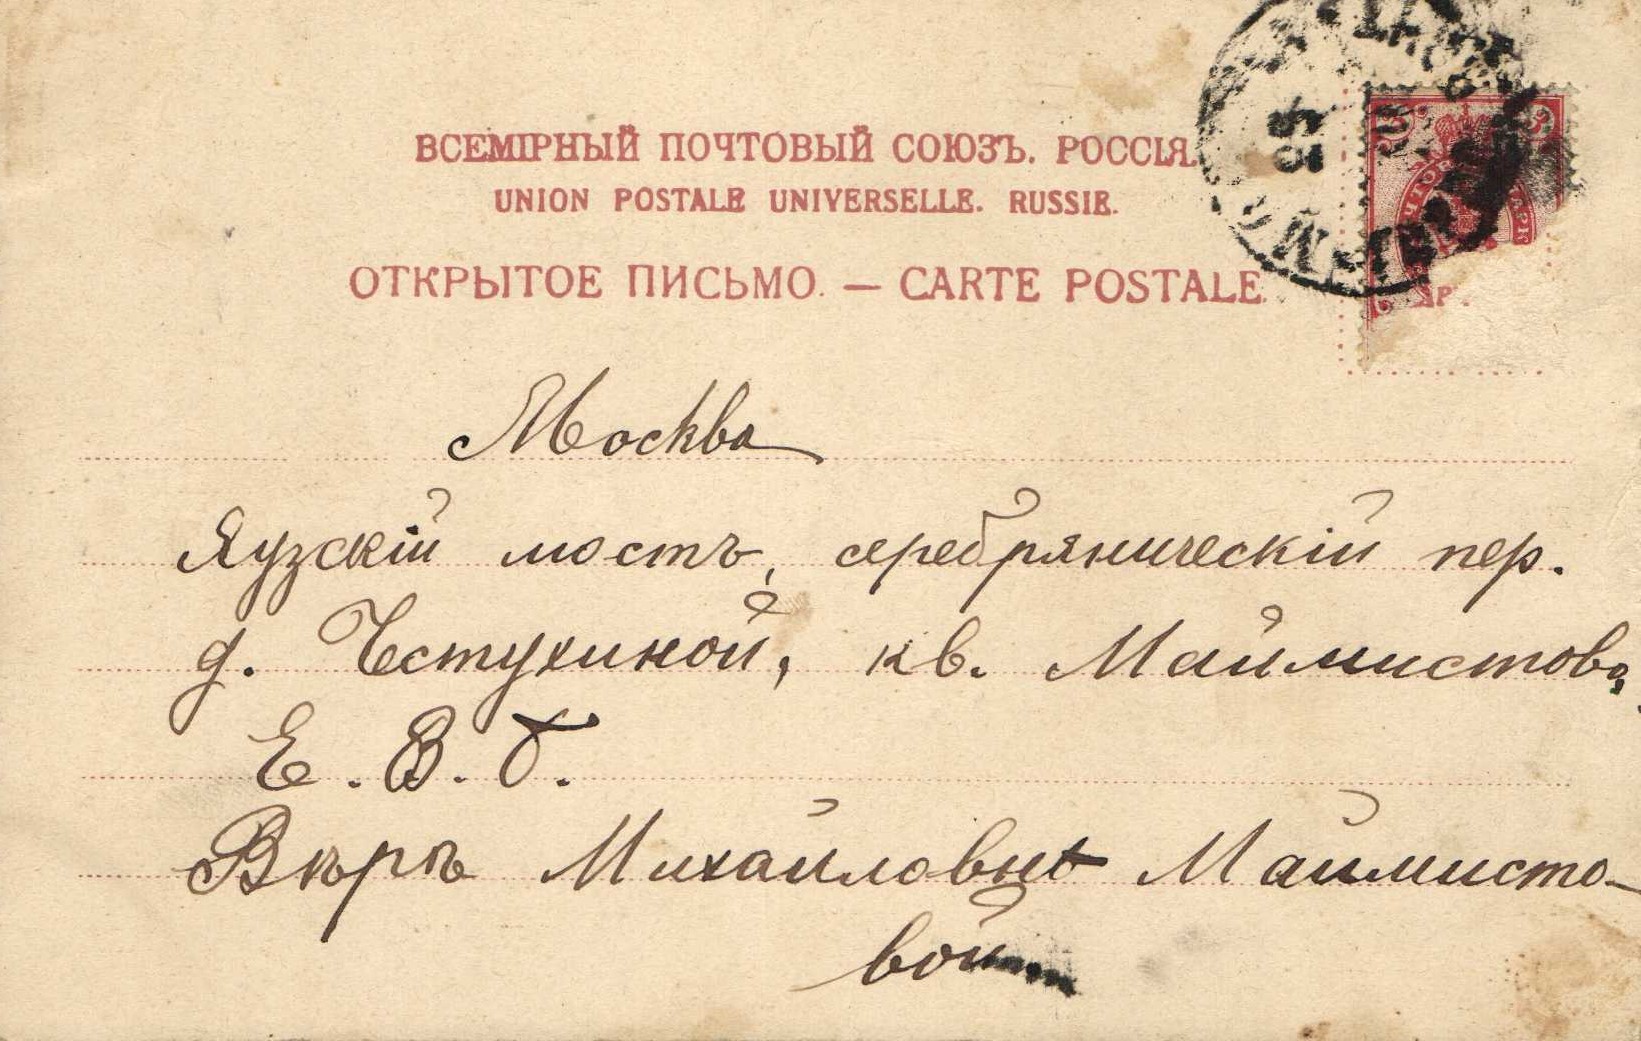 ВСЕМІРНЫЙ ПОЧТОВЫЙ СОЮЗЪ. РОССІЯ.
UNION POSTALE UNIVERSELLE. RUSSIE.
ОТКРЫТОЕ ПИСЬМО. — CARTE POSTALE.
Москва
Яузскій мостъ, серебряническій пер.
д. Чстухиной, кв. Маймистова,
Е. В. б.
Вѣрѣ Михайловнѣ Маймисто-
вой